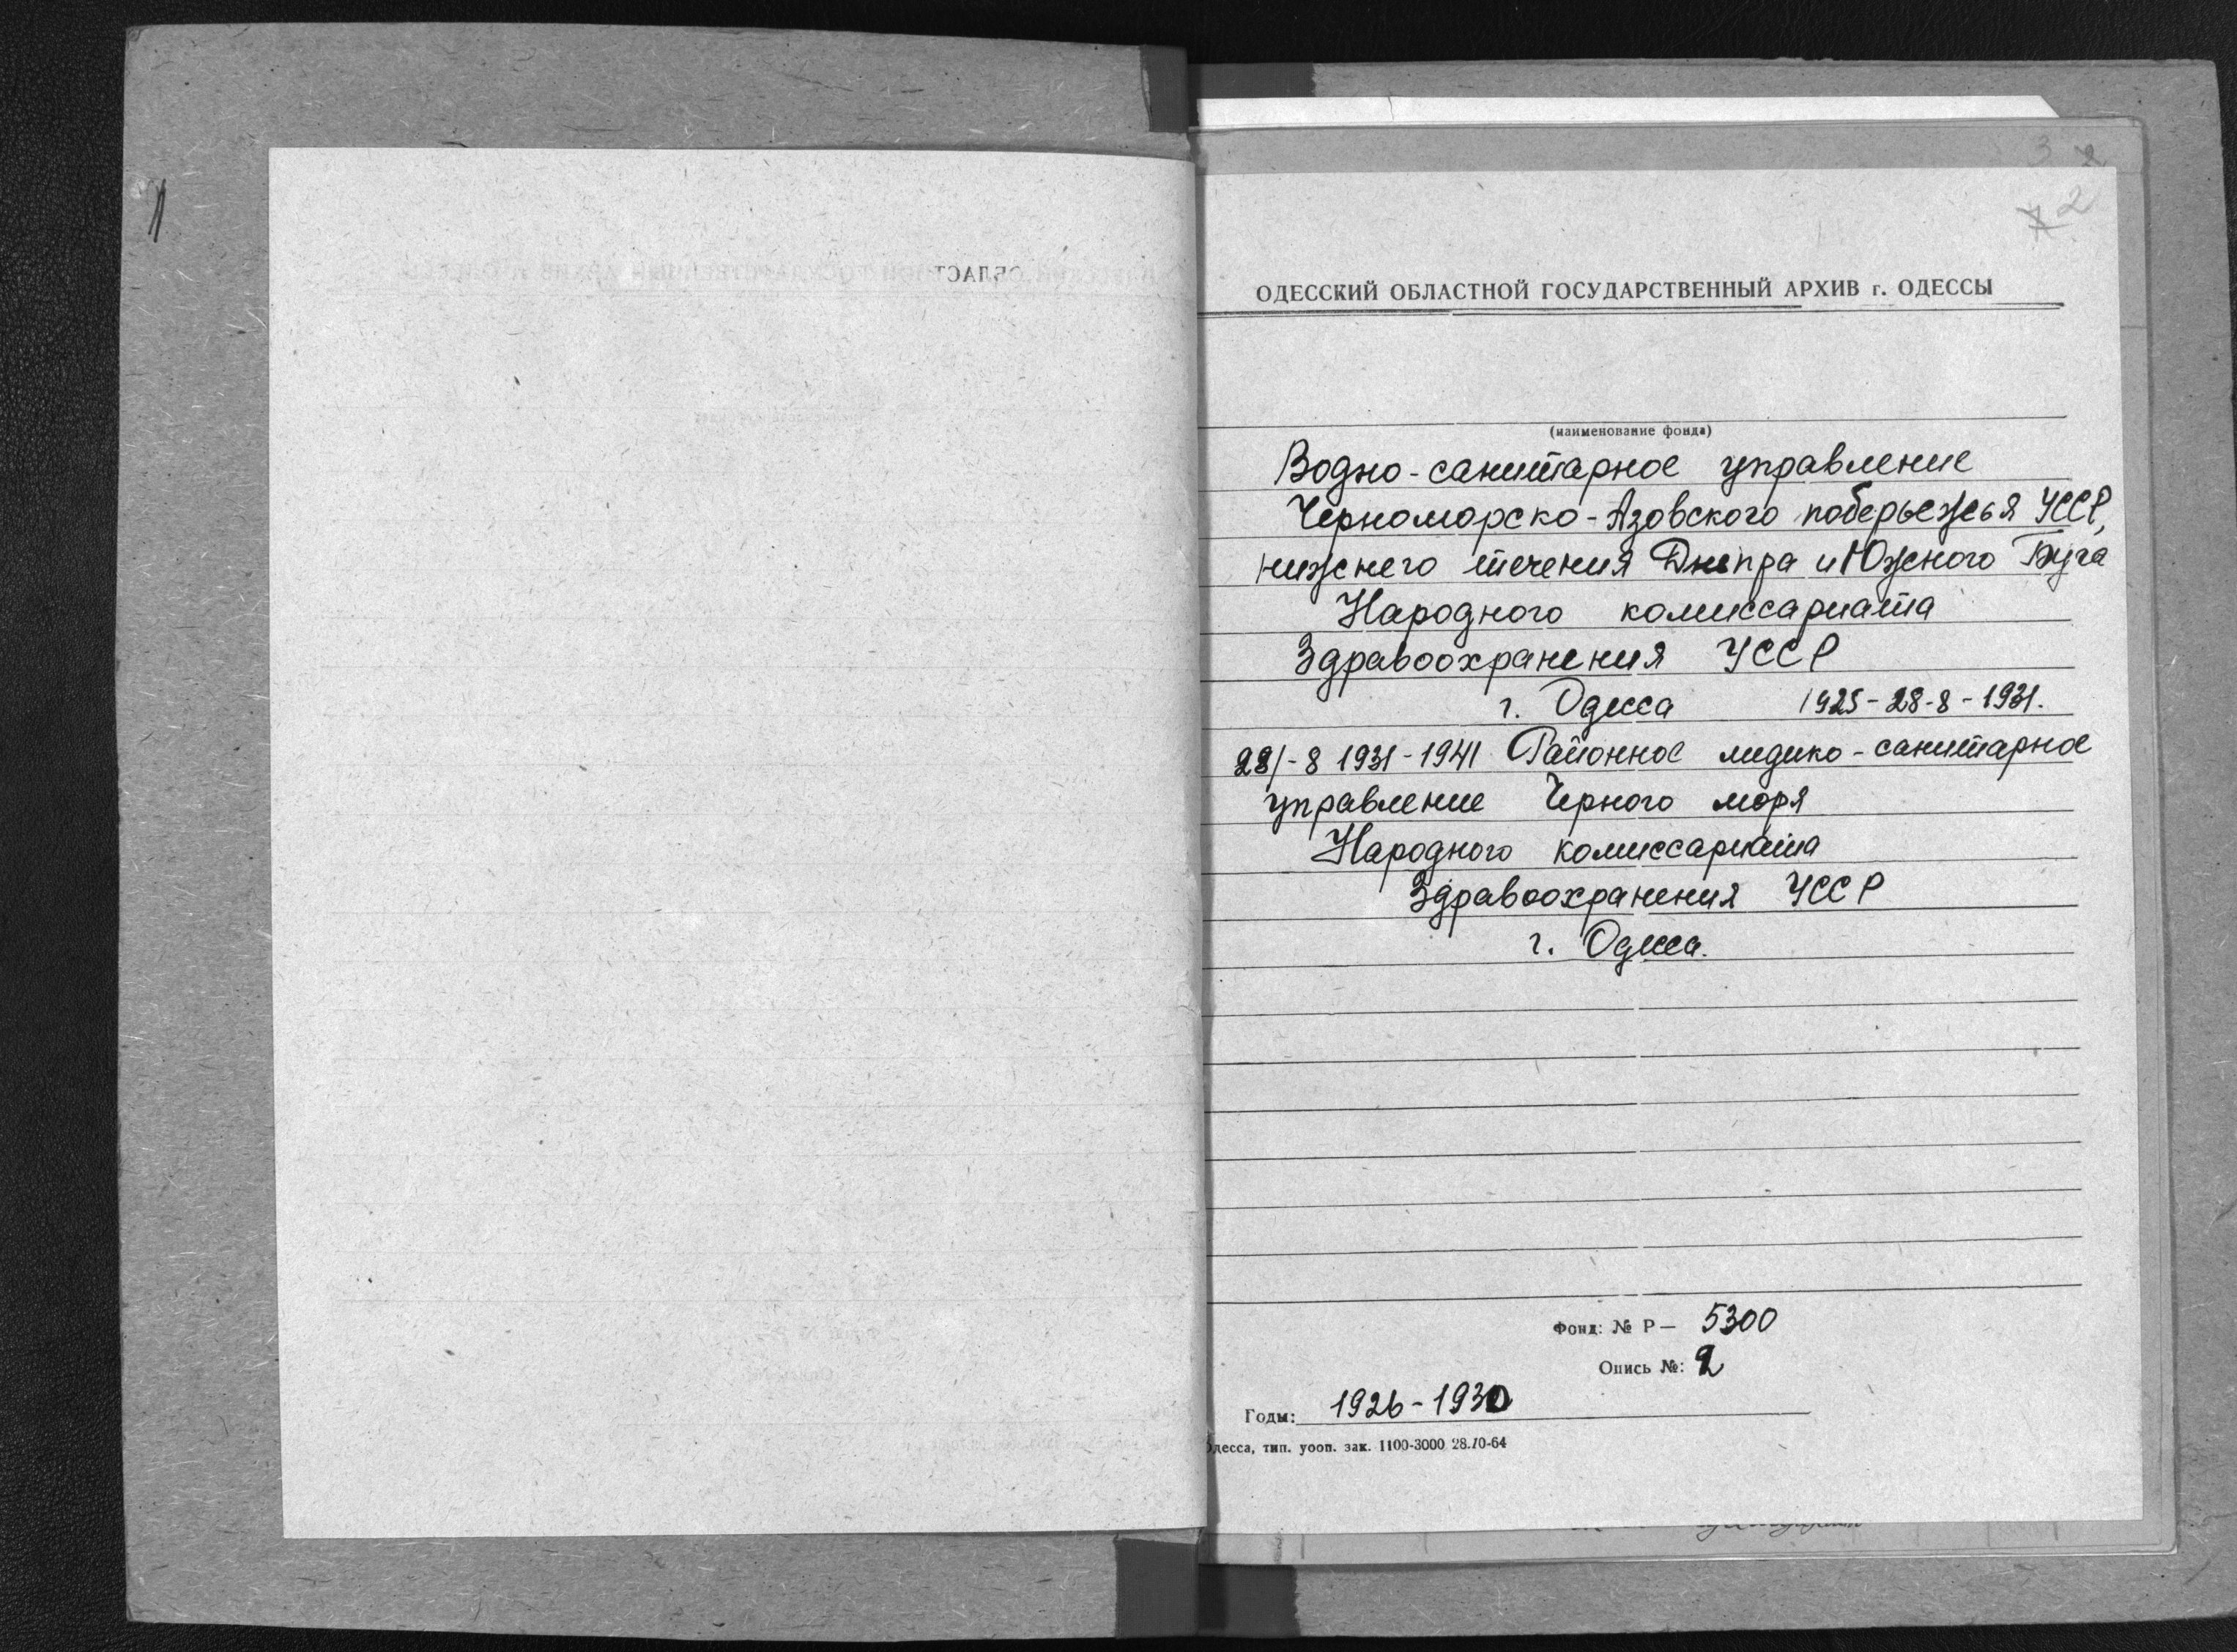 3 2
2
ОДЕССКИЙ ОБЛАСТНОЙ ГОСУДАРСТВЕННЫЙ АРХИВ г. ОДЕССЫ
(наименование фонда)
Водно-санитарное управление
Черноморско-Азовского поберьежья УССР,
нижнего течения Днепра и Южного Буга
Народного комиссариата
Здравоохранения УССР
г. Одесса 1925-28-8-1931.
28/-8 1931-1941 Районное медико-санитарное
управление Черного моря
Народного комиссариата
Здравоохранения УССР
г. Одесса.
Фонд: № Р— 5300
Опись №: 2
Годы: 1926-1930
Одесса, тип. уооп. зак. 1100-3000 28.10-64